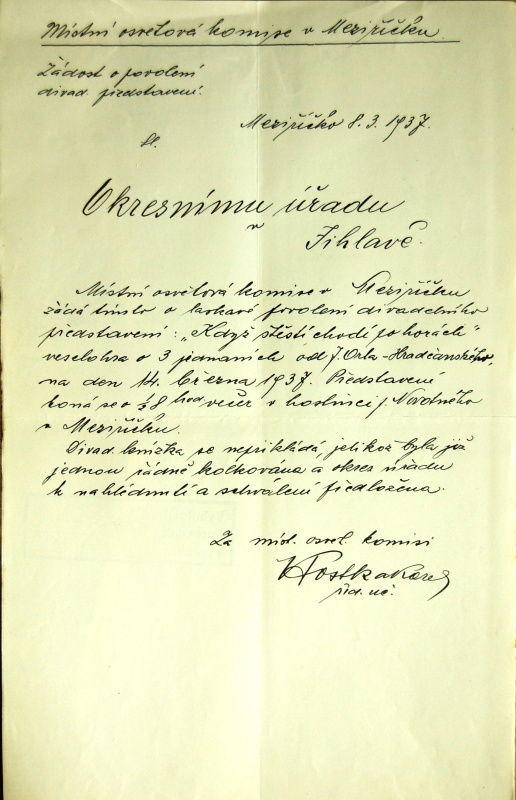 Místní osvětová komise v Meziříčku.
Žádost o povolení
divad. představení.
Meziříčko 8.3.1937.
Sl.
Okresnímu úřadu
v
Jihlavě.
Místní osvětová komise v Meziříčku
žádá tímto o laskavé povolení divadelního
představení: „Když štěstí chodí po horách"
veselohra o 3 jednáních od J. Orla-Hradčanského,
na den 14. března 1937. Představení
koná se o ½8 hod večer v hostinci j. Novotného
v Meziříčku.
Divad. knížka se nepřikládá, jelikož byla již
jednou řádně kolkována a okres. úřadu
k nahlédnutí a schválení předložena.
Za míst. osvět. komisi
říd. uč.